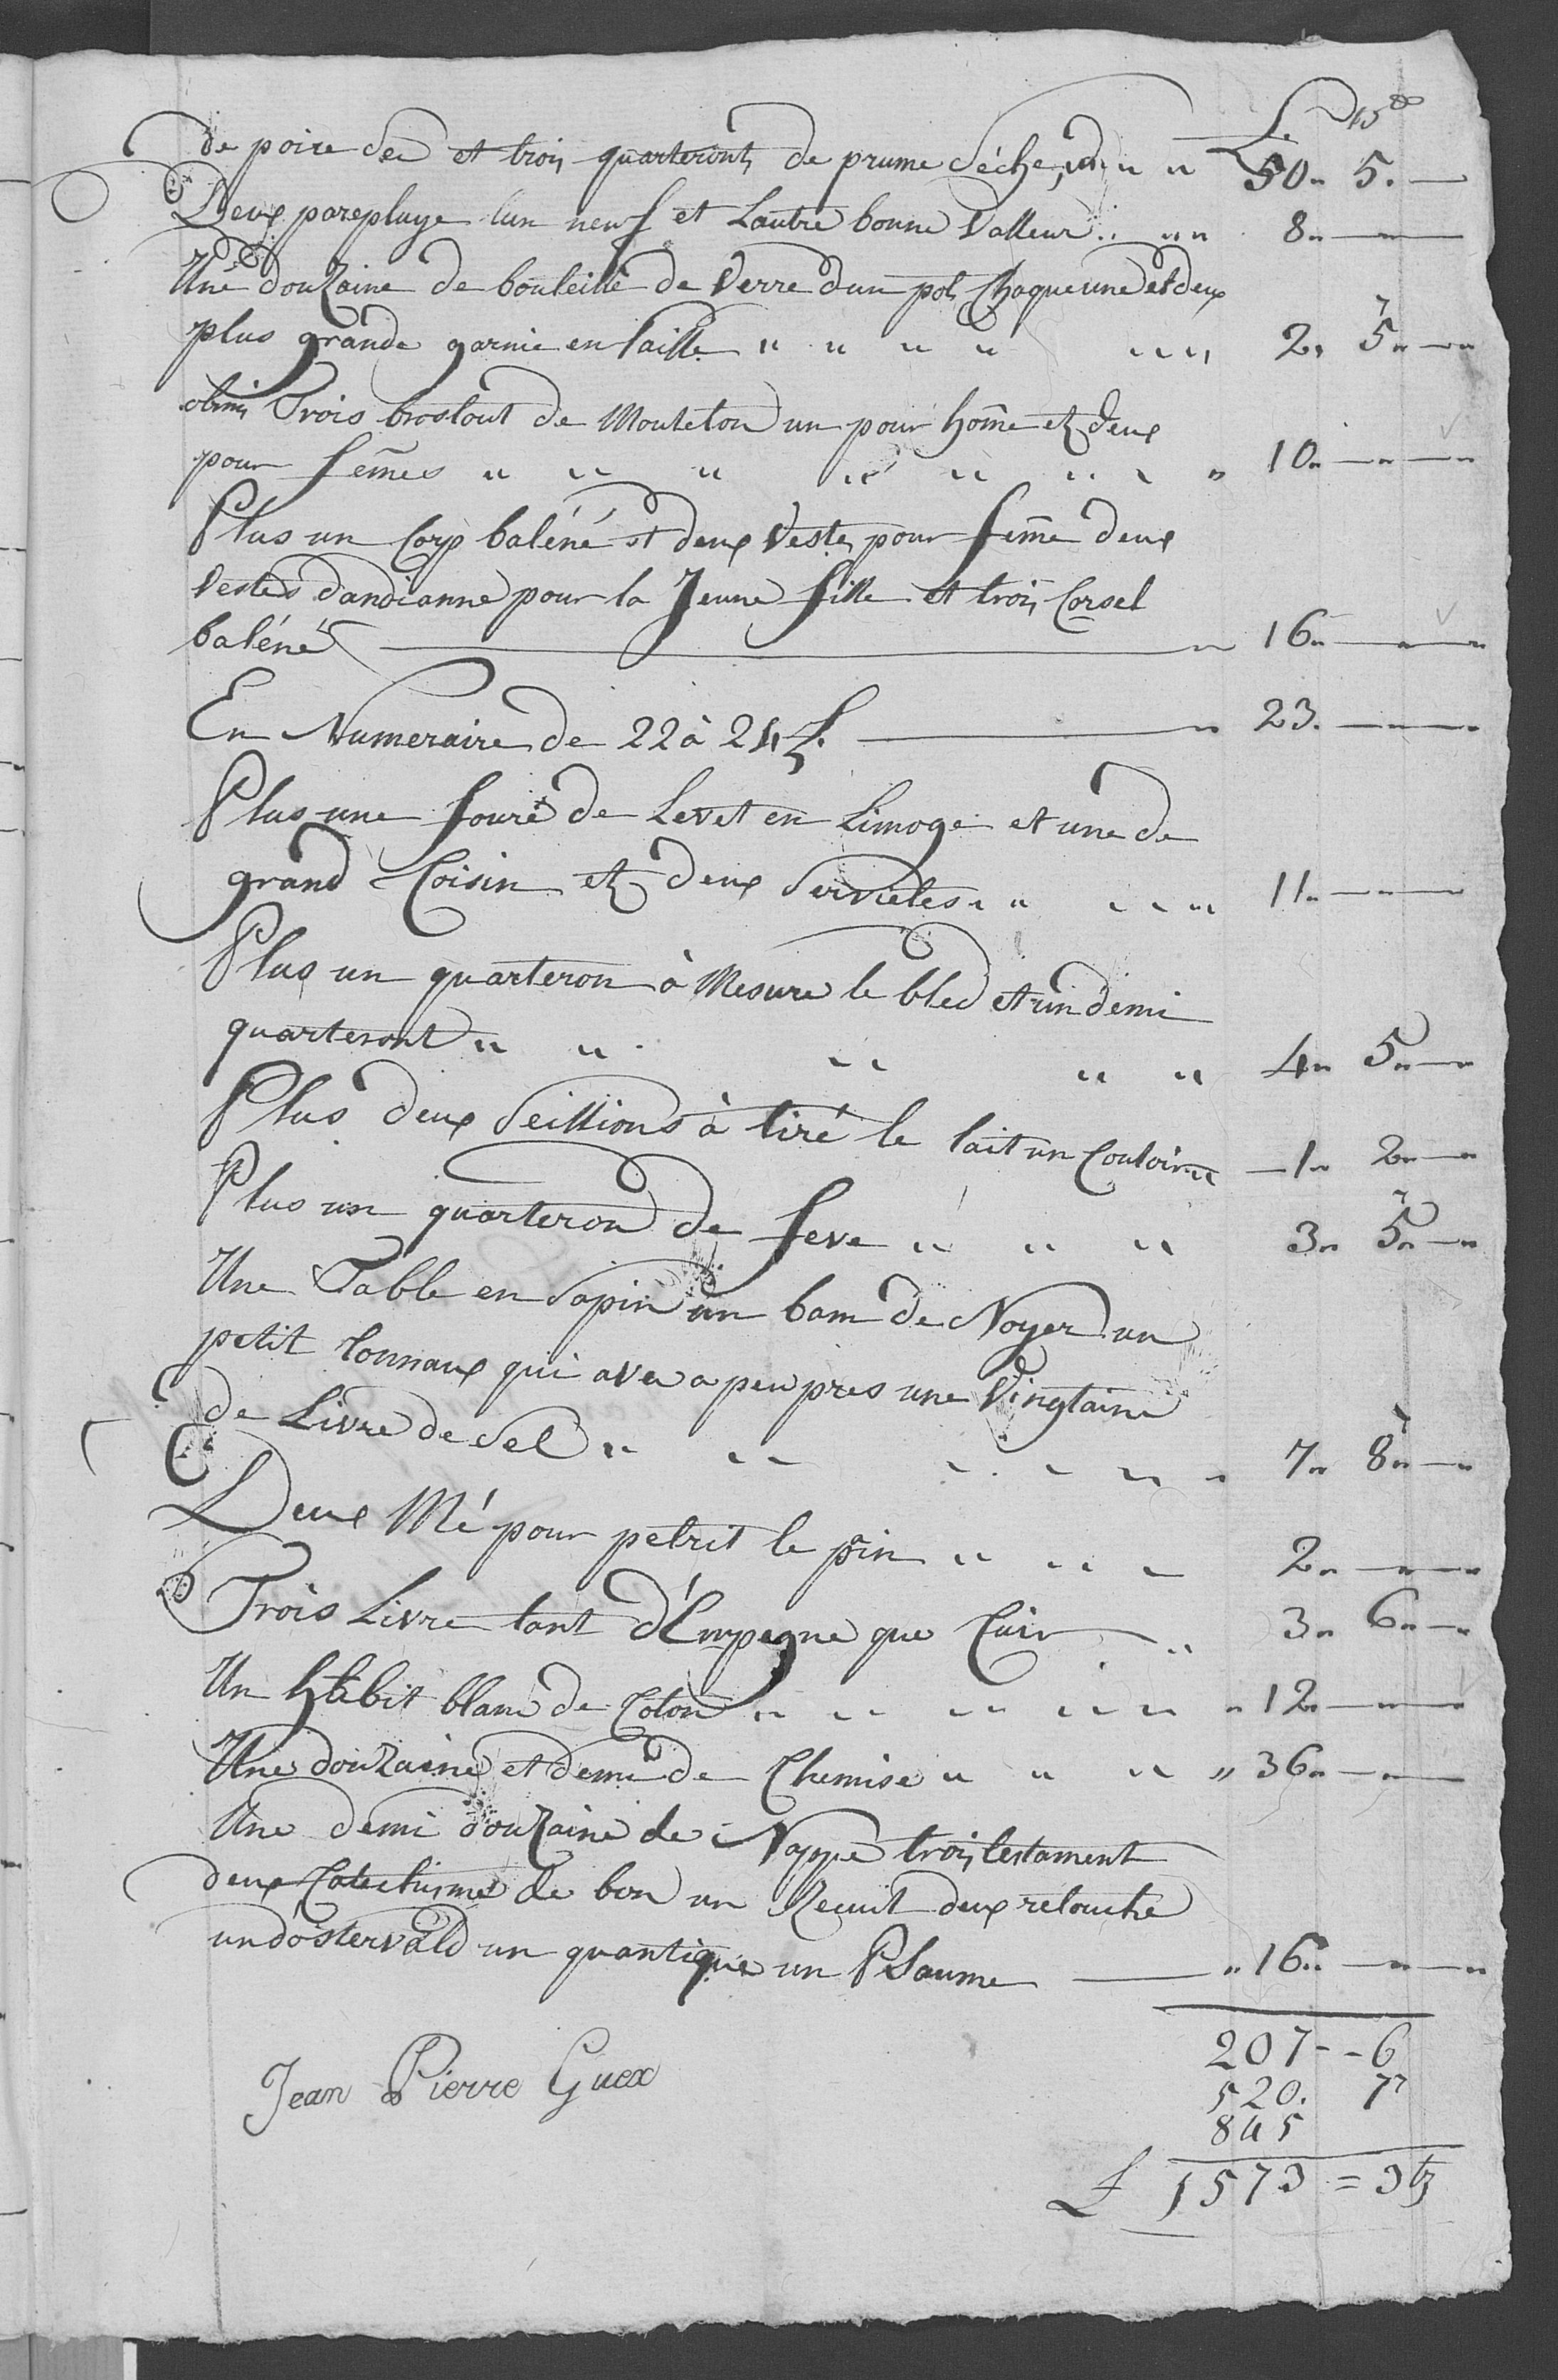 L. bz
de poire sec et trois quarteront de prume séche, " " 50 " 5. —
Deux parepluye lun neuf et Lautre bonne Valleur " " 8 " —
Une douzaine de bouteille de Verre dun pot Chaqueune et deux
plus grande garnie en paille " " " " " " 2 " 5 " —
Trois brostout de Mouteton un pour home et deux
pour femes " " " " " " " 10 " —
Plus un Corp baléné et deux Veste pour feme deux
Vestes dandianne pour la Jeune fille et trois Corset
baléné — 16 " —
En Numeraire de 22 à 24 L. — 23. —
Plus une fouré de Levet en Limoge et une de
grand Coisin et deux Servietes " " " " 11 " —
Plus un quarteron à Mesure le bled et un demi
quarteront " " " " " 4 " 5 " —
Plus deux Seillions à tiré le lait un Couloir " 1 " 2 " —
Plus un quarteron de feve " " " 3 " 5 " —
Une Table en Sapin un bam de Noyer un
petit Tonnaux qui avea a peu pres une Vingtaine
de Livre de Sel " " " " " 7 " 8 " —
Deux Mé pour petrit le pin " " " 2 " —
Trois Livre tant d'Empegne que Cuir " 3 " 6 " —
Un Habit blanc de Coton " " " " " 12 " —
Une douzaine et demi de Chemise " " " " 36 " —
Une demi douzaine de Nappe trois testament
deux Catechisme de bon un Recuit deux retouche
un dostervald un quantique un Psaume — " 16 " —
207 - - 6
520. 7
845
Jean Pierre Guex
L 1573 = 3 bz